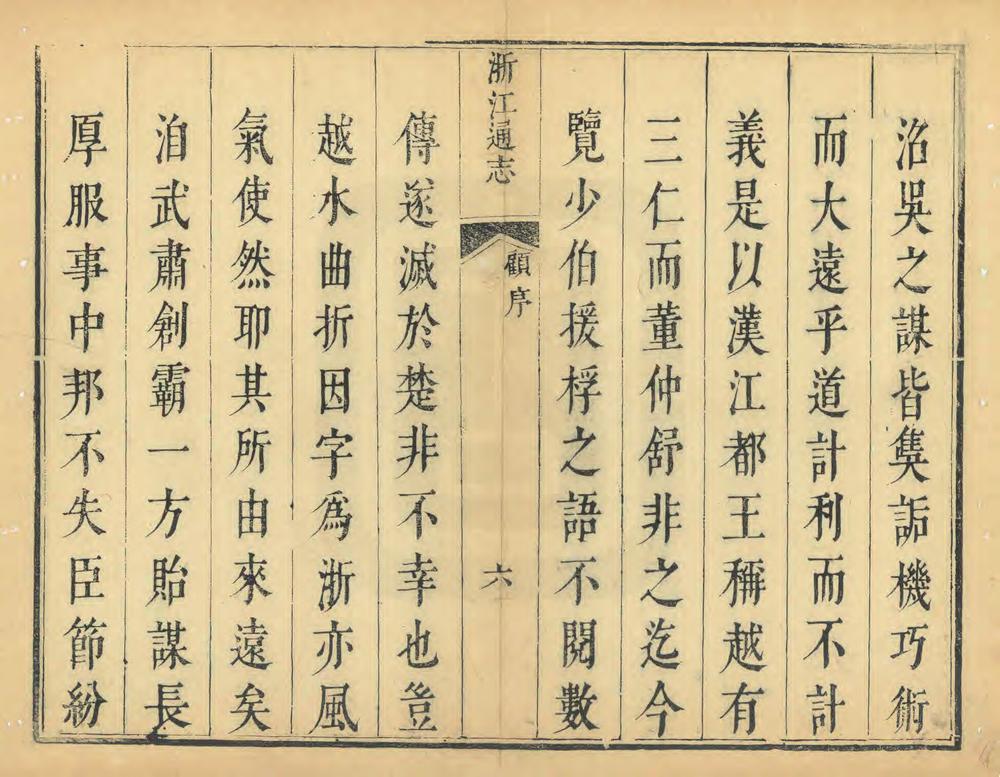 沼吳之謀皆𨾏詬機巧術
而大遠乎道計利而不計
義是以漢江都王稱越有
三仁而董仲舒非之迄今
覽少伯援桴之語不閱數
浙江通志
顧序
六
傳遂滅於楚非不幸也豈
越水曲折因字為浙亦風
氣使然耶其所由來遠矣
洎武肅創霸一方貽謀長
厚服事中邦不失臣節紛